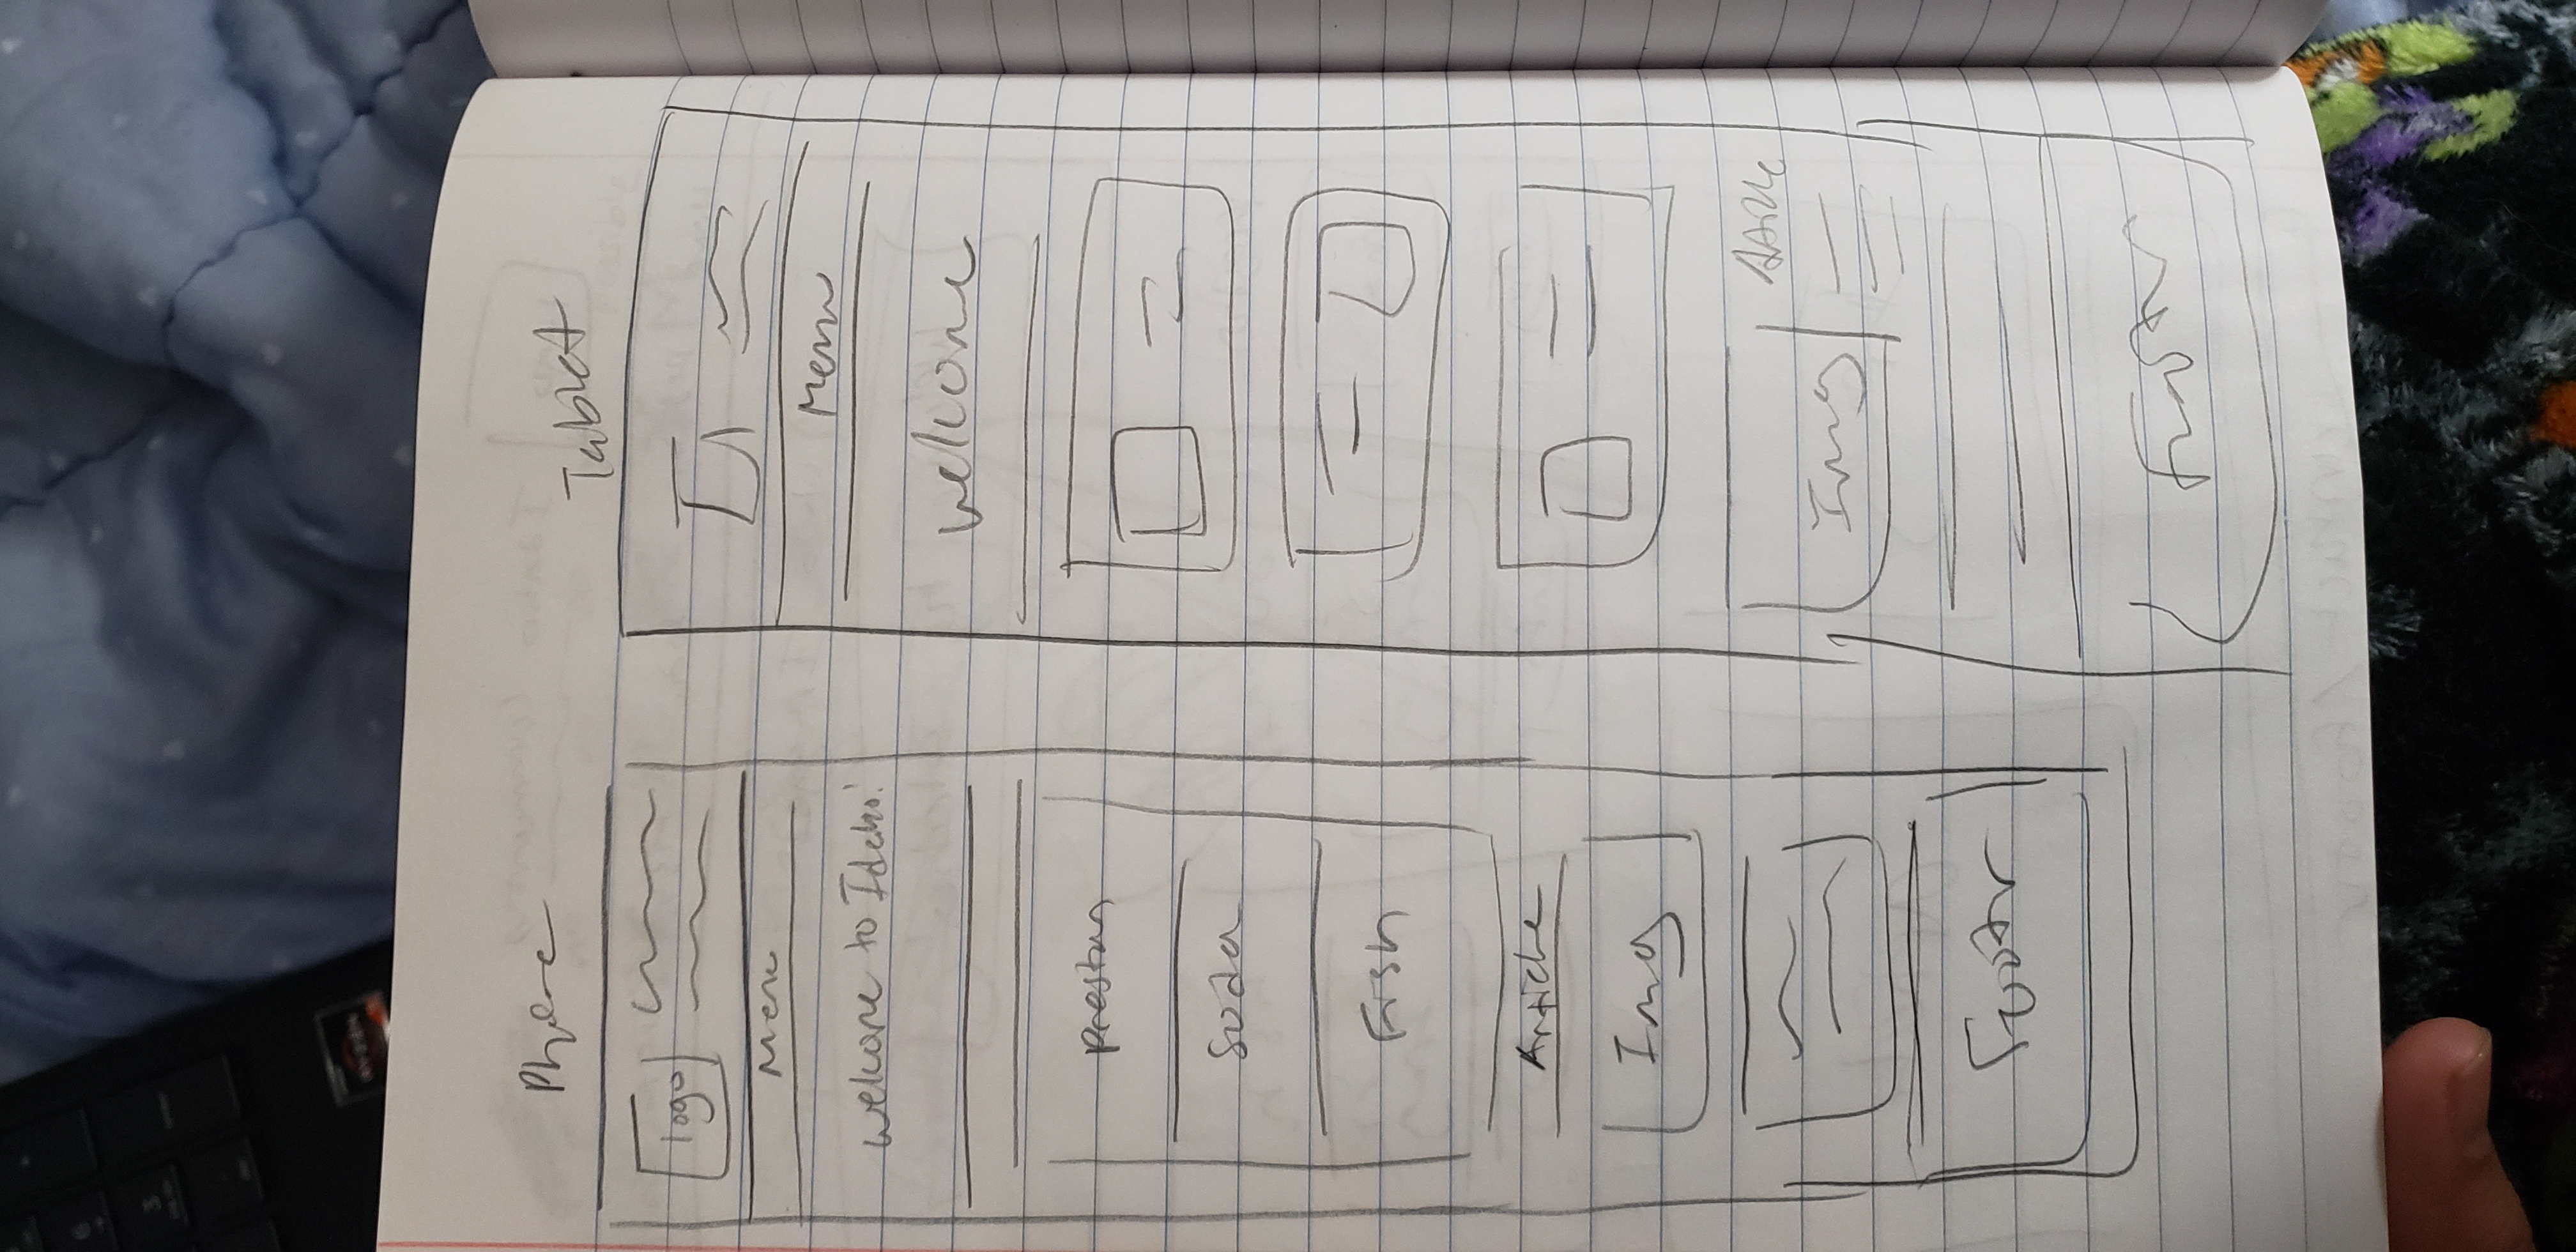 Phone
logo
Menu
welcome to Idaho!
Preston
Soda
Fish
Article
Img
Footer
Tablet
Menu
welcome
Img
Article
Footer
RYZEN
6
3